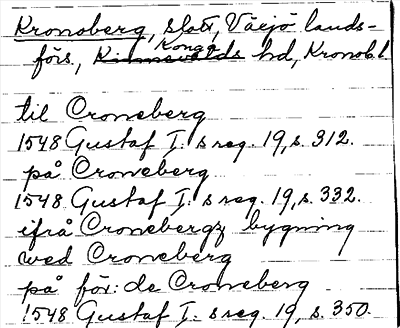 Kronoberg, slott, Växjö lands-
Konga
förs., Kinnevalds hd, Kronob. l.
til Croneberg
1548 Gustaf I:s reg. 19, s. 312.
på Croneberg
1548 Gustaf I:s reg. 19, s. 332.
ifrå Cronebergz bygning
wed Croneberg
på för:de Croneberg
1548 Gustaf I:s reg. 19, s. 350.